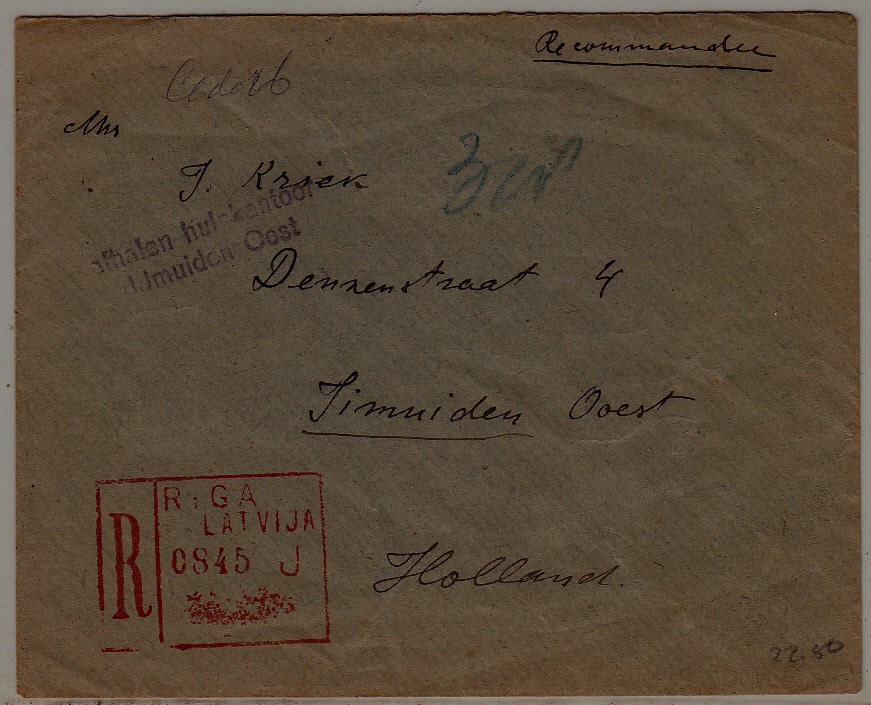 Recommandee
Mrs
J. Kriek
afhalen hulpkantoor
IJmuiden Oost
Dennenstraat 4
Jimuiden Ooest
R RiGA
LATVIJA
0845 J
Holland.
22.50